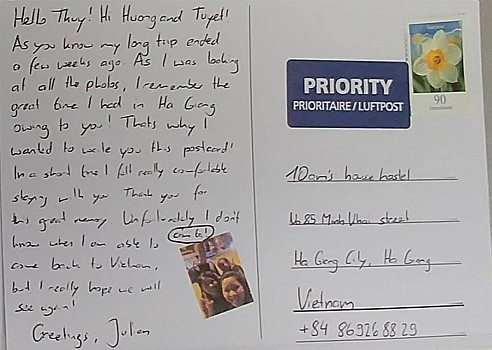 Hello Thuy! Hi Huong and Tuyet!
As you know my long trip ended
a few weeks ago. As I was looking
at all the photos, I remember the
great time I had in Ha Giang
owing to you! Thats why I
wanted to write you this postcard!
In a short time I felt really comfortable
staying with you. Thank you for
this great memory. Unfortunately I don't
know when I am able to
come back to Vietnam,
but I really hope we will
see again!
Greetings, Julian
PRIORITY
PRIORITAIRE / LUFTPOST
90
Deutschland
house hostel
No 85 Minh Khai street
Ha Giang City, Ha Giang
Vietnam
+84 86926 88 29